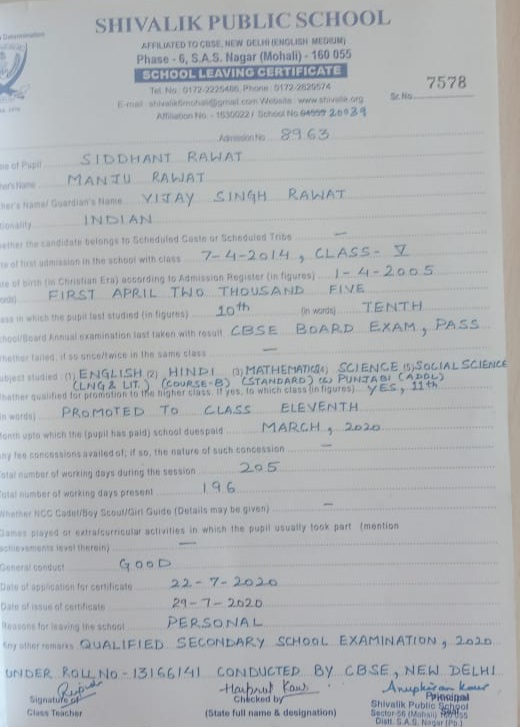 SHIVALIK PUBLIC SCHOOL
AFFILIATED TO CBSE, NEW DELHI (ENGLISH MEDIUM)
Phase - 6, S.A.S. Nagar (Mohali) - 160 055
SCHOOL LEAVING CERTIFICATE
Tel. No. 0172-2225486, Phone: 0172-2625574
E-mail: shivalik6mohali@gmail.com Website: www.shivalik.org
Sr. No. 7578
Affiliation No. - 1630022 / School No. 20039
Admission No. 8963
of Pupil SIDDHANT RAWAT
her's Name MANJU RAWAT
her's Name/ Guardian's Name VIJAY SINGH RAWAT
tionality INDIAN
ether the candidate belongs to Scheduled Caste or Scheduled Tribe —
te of first admission in the school with class 7-4-2014, CLASS- V
te of birth (in Christian Era) according to Admission Register (in figures) 1-4-2005
ords) FIRST APRIL TWO THOUSAND FIVE
ass in which the pupil last studied (in figures) 10th (in words) TENTH
chool/Board Annual examination last taken with result CBSE BOARD EXAM, PASS
hether failed, if so once/twice in the same class —
ubject studied (1) ENGLISH (2) HINDI (3) MATHEMATICS (4) SCIENCE (5) SOCIAL SCIENCE
(LNG & LIT.) (COURSE-B) (STANDARD) (6) PUNJABI (ADDL)
hether qualified for promotion to the higher class. If yes, to which class (in figures) YES, 11th
n words) PROMOTED TO CLASS ELEVENTH
onth upto which the (pupil has paid) school dues paid MARCH, 2020
ny fee concessions availed of; if so, the nature of such concession —
otal number of working days during the session 205
otal number of working days present 196
Whether NCC Cadet/Boy Scout/Girl Guide (Details may be given) —
Games played or extra/curricular activities in which the pupil usually took part (mention
achievements level therein) —
General conduct GOOD
Date of application for certificate 22-7-2020
Date of issue of certificate 29-7-2020
Reasons for leaving the school PERSONAL
Any other remarks QUALIFIED SECONDARY SCHOOL EXAMINATION, 2020
UNDER ROLL NO - 13166141 CONDUCTED BY CBSE, NEW DELHI
Harpreet Kaur Anupkiran Kaur
Signature of Checked by Principal
Class Teacher (State full name & designation) Shivalik Public School
Sector-56 (Mohali)
Distt. S.A.S. Nagar (Pb.)